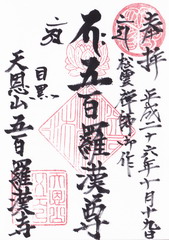 奉拝
平成二十六年十月十九日
松雲禅師御作
五百羅漢尊
目黒
天恩山五百羅漢寺